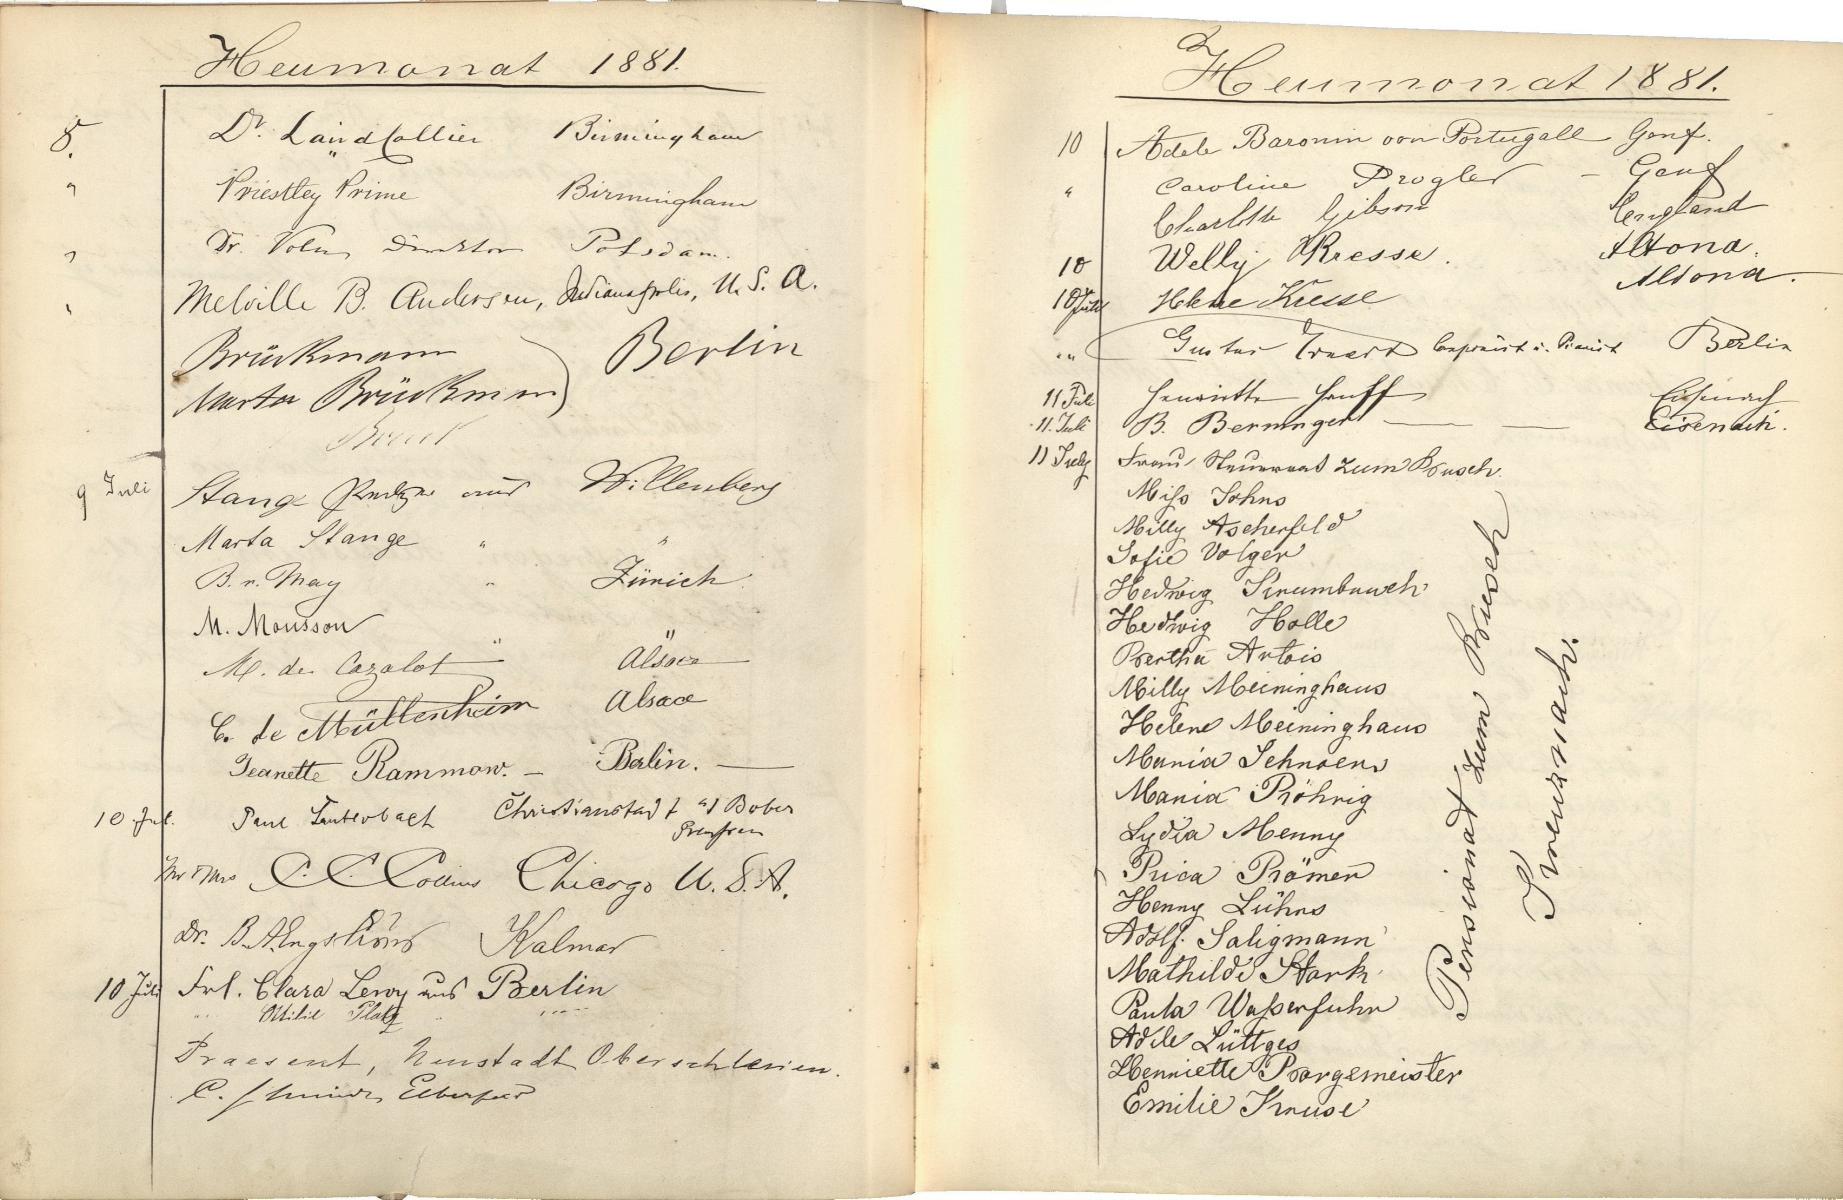 Heumonat 1881.
8. Dr. Laird Collier Birmingham
" Priestley Prime Birmingham
" Dr. Direktor Potsdam.
" Melville B. Anderson, Indianapolis, U. S. A.
Brückmann Berlin
Marta Brückmann
9 Juli Stange aus Willenberg
Marta Stange " "
B. v. May " Zürich
M. Mousson
M. de Cazalot " Alsace
C. de Müllenheim Alsace
Jeanette Rammow. – Berlin. —
10 Jul. Paul Lauterbach Christianstadt a/ Bober
Preußen
Mr & Mrs C. C. Collins Chicago U. S. A.
Dr. B. A. Engström Kalmar
10 Juli Frl. Clara Levy aus Berlin
" Ottilie Platz " "
Praesent, Neustadt Oberschlesien.
C. Elberfeld
Heumonat 1881.
10 Adele Baronin von Portugall Genf.
" Caroline Progler – Genf
Charlotte Gibson England
10 Welly Kresse. Altona.
10 Juli Helene Kresse Altona.
" Gustav Componist u. Pianist Berlin
11 Juli Henriette Hauff Eisenach
11. Juli B. Berninger — — Eisenach.
11 July Frau Steuerrat zum Busch.
Miß Johns
Milly Ascherfeld
Sofie Volger
Hedwig Krumbusch
Hedwig Holle
Bertha Artois
Milly Meininghaus
Helene Meininghaus
Maria Schnoen
Maria Röhrig
Lydia Menny
Henny Lühns
Adolf. Saligmann
Mathilde Stark
Paula Waßerfuhr
Adele Lüttges
Henriette Borgemeister
Emilie Kruse
Pensionat zum Busch